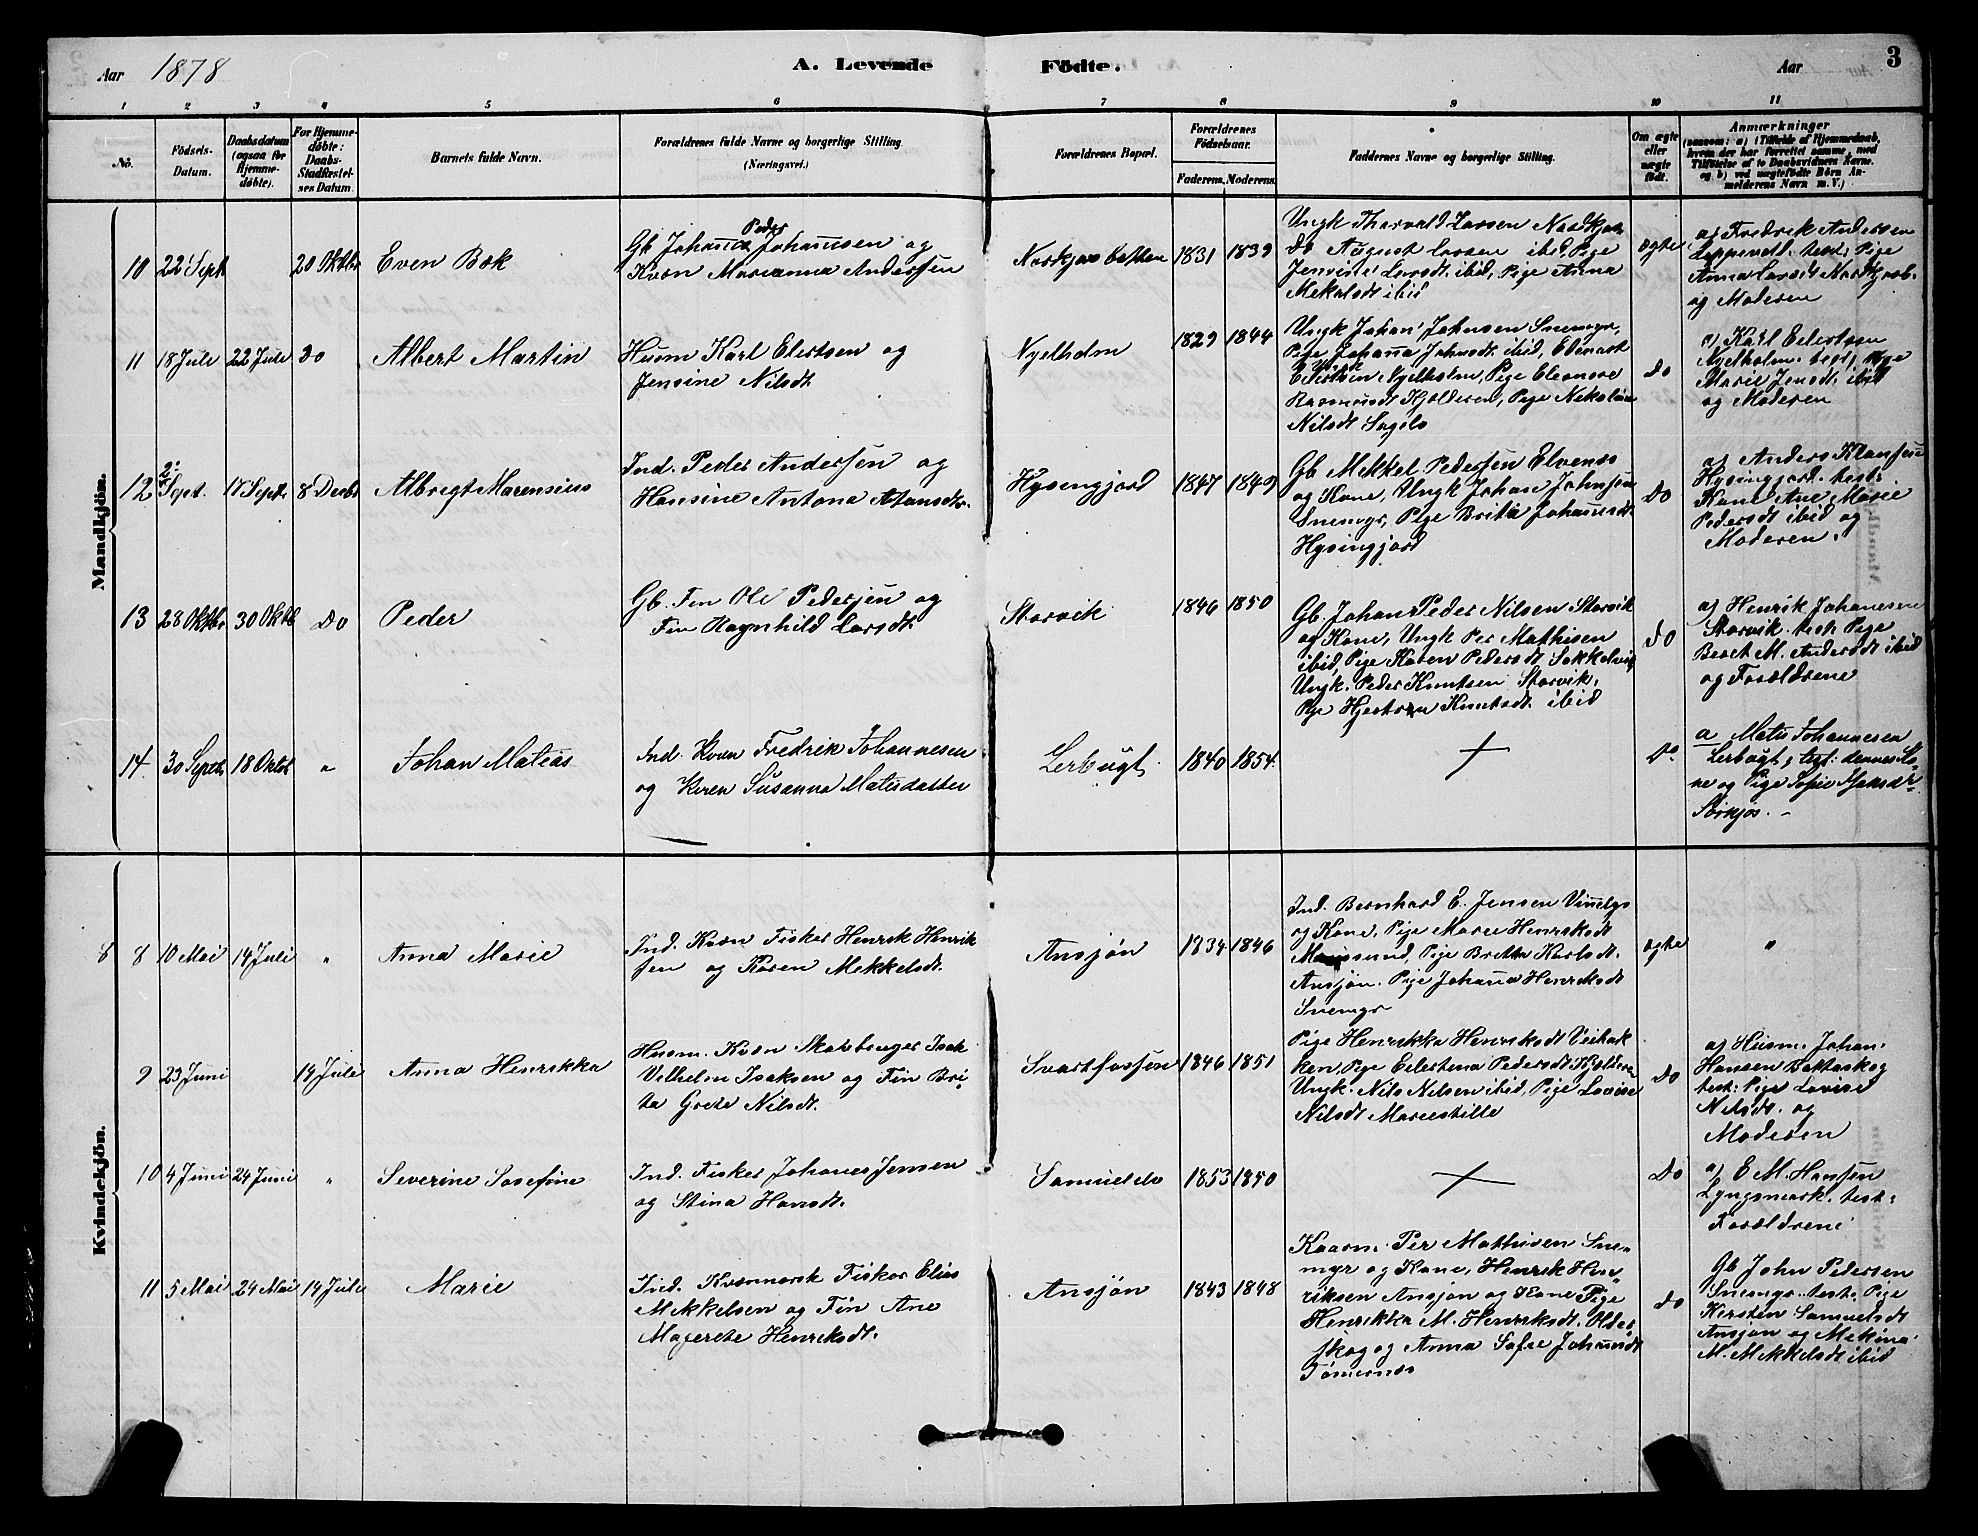 Aar 1878
A. Levende Födte.
Aar
3
1 2 3 4 5 6 7 8 9 10 11
No.
Födsels-Datum.
Daabsdatum (ogsaa for Hjemmedöbte).
For Hjemmedöbte: Daabs-Stadfæstelses Datum.
Barnets fulde Navn.
Forældrenes fulde Navne og borgerlige Stilling (Næringsvei.)
Forældrenes Bopæl.
Forældrenes Födselsaar.
Faderens. Moderens.
Faddernes Navne og borgerlige Stilling.
Om ægte eller uægte födt.
Anmærkninger
(saasom: a) i Tilfælde af Hjemmedaab, hvem der har forrettet samme, med Tilföielse af to Daabsvidners Navne. og b) ved uægtefödte Börn Anmelderens Navn m. V.)
Mandkjön.
10 22 Sept 20 Oktbr Even Bæk
Gb Johannes Peder Johannsen og
Kvæn Marianna Andersen
Norkjosbotten 1831 1839
Ungk Tharvald Larsen Nordkjos
Do August Larsen ibid, Pige
Jensine Larsdt. ibid, Pige Anna
Mekalsdt ibid
ægte
a) Fredrik Andersen
test. Pige
Anna Larsdt Nordkjosb.
og Moderen
11 18 Jule 22 Jule Do Albert Martin
Husm Karl Elertsen og
Jensine Nilsdt.
Nyelholm 1829 1844
Ungk Johan Johnsen Snemyr,
Pige Johanna Johnsdt. ibid, Edevart
Eilertsen Nyelholm, Pige Eleonore
Rasmusdt Kjoldesen, Pige Nekoline
Nilsdt Sagelv
Do
a) Karl Eilertsen
Nyelholm. test, Pige
Marie Jensdt. ibid
og Moderen
12 2 Sept. 18 Septr 8 Decbr Albregt Marensius
Ind. Peder Andersen og
Hansine Antona Hansdtr.
Hysingjord 1847 1849
Gb Mekkel Pedersen Elvenes
og Kone, Ungk Johan Johnsen
Snemyr, Pige Brita Johannsdt.
Hysingjord
Do
a) Anders Klausen
Hysingjord. test:
Kone Ane Marie
Pedersdt ibid og
Moderen.
13 28 Oktbr. 30 Oktb Do Peder
Gb. Fin Ole Pedersen og
Fin Ragnhild Larsdt.
Storvik 1846 1850
Gb. Johan Peder Nilsen Storvik
og Kone, Ungk Per Mathisen
ibid, Pige Karen Pedersdt. Sokkelvig
Ungk. Peder Knutsen Storvik.
Pige Knutsdt. ibid
Do
a) Henrik Johanesen
Storvik. test, Pige
Beret M. Andersdt ibid
og Forældrene
14. 30 Septbr 18 Oktbr " Johan Matias
Ind. Kvæn Fredrik Johannesen
og Kvæn Susanna Matisdatter
Lerbugt. 1840 1854.
Do
a Matis Johannesen
Lerbugt; test: dennes Ko-
ne og Pige Sofie Hansdtr
Sörkjos. –
Kvindekjön.
8 8 10 Mai 14 Juli " Anna Marie
Ind. Kvæn Fisker Henrik Henrik
sen og Karen Mekkelsdt.
Ansjön 1834. 1846
Ind. Bernhard E. Jensen
og Kone, Pige Marie Henriksdt
Pige Britta Karlsdt.
Ansjön. Pige Johanna Henriksdt
Snemyr
ægte
"
9 23 Juni 14 Jule Anna Henrikka
Husm. Kvæn Isak
Vilhelm Isaksen og Fin Bri-
ta Grete Nilsdt.
Svartfossen 1846 1851
Pige Henrikka Henriksdt
Pige Eilertena Pedersdt Kjoldesen
Ungk. Nils Nilsen ibid, Pige Lovise
Nilsdt Mareestille
Do
a) Husm. Johan
Hansen Baktaskog
test: Pige Lovise
Nilsdt. og
Moderen
10 4 Juni 24 Juni " Severine Josefine
Ind. Fisker Johanes Jensen
og Stina Hansdt.
Samuelelv 1853 1850
Do
a) E M. Hansen
Lyngsmark. test:
Forældrene
11 5 Mai 24 Mai 14 Jule Marie
Ind. Kvænnorsk Fisker Elias
Mekkelsen og Fin Ane
Magrete Henriksdt.
Ansjön 1843 1848
Kaarm. Per Mathisen Sne-
myr og Kone, Henrik Hen-
riksen Ansjön og Kone Pige
Henrikka M. Henriksdt. Older-
skog og Anna Sofie Johansdt
Tömernes
Do
Gb John Pedersen
Snemyr. test. Pige
Kirsten Samuelsdt
Ansjön og Mekina
M. Mekkelsdt ibid